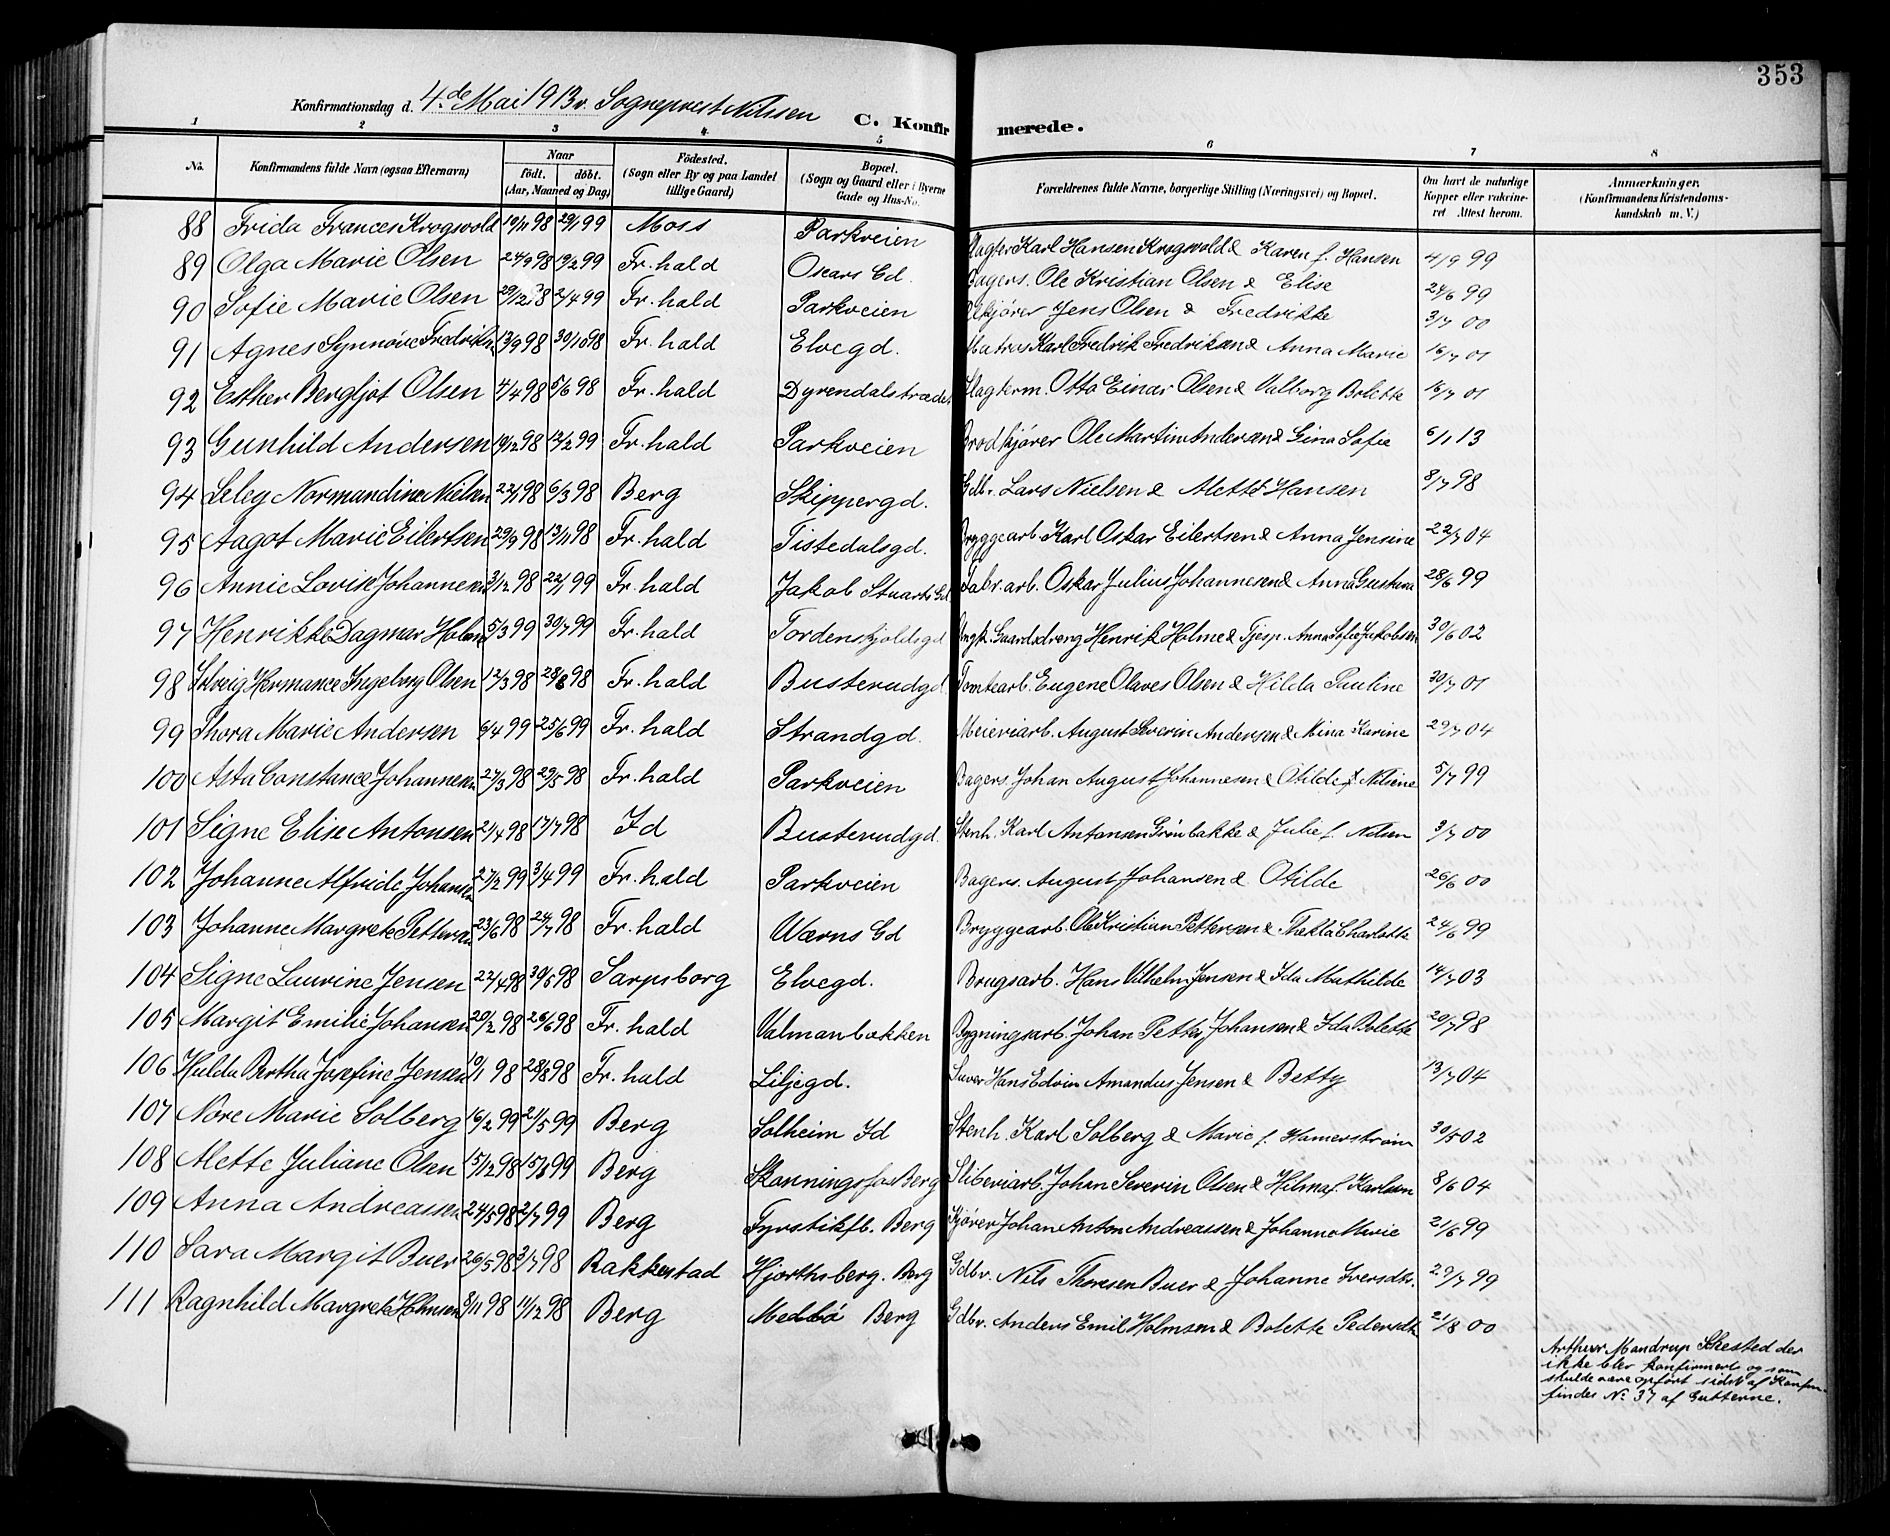 353
Konfirmationsdag d. 4.de Mai 1913 v. Sogneprest Nilssen
C. Konfirmerede.
1 2 3 4 5 6 7 8
No. Konfirmandens fulde Navn (ogsaa Efternavn) Naar født. døbt. (Aar, Maaned og Dag) Födested. (Sogn eller By og paa Landet tillige Gaard) Bopæl. (Sogn og Gaard eller i Byerne Gade og Hus-No. Forældrenes fulde Navne, borgerlige Stilling (Næringsvei) og Bopæl. Om havt de naturlige Kopper eller vakcineret Attest herom. Anmærkninger. (Konfirmandens Kristendomskundskab m. V.)
88 Frida Frances Krogsvold 19/11 98 29/1 99 Moss Parkveien Slagter Karl Hansen Krogsvold & Karen f. Hansen 4/9 99
89 Olga Marie Olsen 24/9 98 19/2 99 Fr.hald Oscars Gd. Bagers. Ole Kristian Olsen & Elise 24/6 99
90 Sofie Marie Olsen 29/12 98 2/4 99 Fr.hald Parkveien Jens Olsen & Fredrikke 3/7 00
91 Agnes Synnøve Fredriksen 13/9 98 30/10 98 Fr.hald Elvegd. Matros Karl Fredrik Fredriksen & Anna Marie 16/7 01
92 Esther Bergljot Olsen 4/4 98 5/6 98 Fr.hald Dyrendalstrædet Slagterm. Otto Einar Olsen & Valborg Bolette 16/7 01
93 Gunhild Andersen 19/12 98 12/2 99 Fr.hald Parkveien Brødkjører Ole Martin Andersen & Gina Sofie 6/1 13
94 Normandine Nielsen 22/1 98 6/3 98 Berg Skippergd. Gdbr. Lars Nielsen & Alette Hansen 8/7 98
95 Aagot Marie Eilertsen 29/9 98 13/11 98 Fr.hald Tistedalsgd. Bryggearb. Karl Oskar Eilertsen & Anna Jensine 22/7 04
96 Annie Lovise Johannesen 3/12 98 22/1 99 Fr.hald Jakob Stuarts Gd Fabr.arb. Oskar Julius Johannesen & Anna Gustava 28/6 99
97 Henrikke Dagmar Holme 5/3 99 30/7 99 Fr.hald Tordenskjoldsgd Ungk. Gaardsdreng Henrik Holme & Tjesp. Anna Sofie Jakobsen 30/6 02
98 Solveig Hermance Ingeborg Olsen 12/3 98 28/8 98 Fr.hald Busterudgd Tomtearb. Eugene Olaves Olsen & Hilda Pauline 30/7 01
99 Thora Marie Andersen 9/4 99 25/6 99 Fr.hald Strandgd. Meieriarb. August Severin Andersen & Mina Karine 29/7 04
100 Asta Constance Johannesen 27/3 98 29/5 98 Fr.hald Parkveien Bagers. Johan August Johannesen & Otilde f. Nilsine 5/7 99
101 Signe Elise Antonsen 21/4 98 17/7 98 Id Busterudgd. Stenh. Karl Antonsen Grønbakke & Julie f. Nilsen 3/7 00
102 Johanne Alfride Johansen 27/2 99 3/4 99 Fr.hald Parkveien Bagers. August Johansen & Otilde 26/6 00
103 Johanne Margrete Pettersen 23/6 98 24/7 98 Fr.hald Værns Gd Bryggearb. Ole Kristian Pettersen & Thekla Charlotte 24/6 99
104 Signe Laurine Jensen 22/4 98 30/5 98 Sarpsborg Elvegd. Brugsarb. Hans Vilhelm Jensen & Ida Mathilde 14/7 03
105 Margit Emilie Johansen 20/2 98 26/6 98 Fr.hald Valmanbakken Bygningsarb. Johan Petter Johansen & Ida Bolette 20/7 98
106 Hulda Bertha Josefine Jensen 19/1 98 28/8 98 Fr.hald Liljegd. Hans Edvin Amandus Jensen & Betty 13/7 04
107 Nore Marie Solberg 16/2 99 21/5 99 Berg Solheim Id Stenh. Karl Solberg & Marie f. Hamerstrøm 30/5 02
108 Alette Juliane Olsen 15/12 98 15/8 99 Berg Skonningsfos Berg Sliberiarb. Johan Severin Olsen & Hilma f. Karlsen 8/6 04
109 Anna Andreassen 24/5 98 2/7 99 Berg Fyrstikfb. Berg Kjører Johan Anton Andreassen & Johanne Marie 21/6 99
110 Sara Margit Buer 26/5 98 3/7 98 Rakkestad Hjorthsberg. Berg Gdbr. Nils Thoresen Buer & Johanne Iversdtr. 29/7 99
111 Ragnhild Margrete Holmsen 8/11 98 11/12 98 Berg Medbø Berg Gdbr. Anders Emil Holmsen & Bolette Pedersdtr 21/8 00
Arthur Mandrup Skested der
ikke blev konfirmert og som
skulde være opført sidst af Konfm.
findes No 37 af Gutterne.